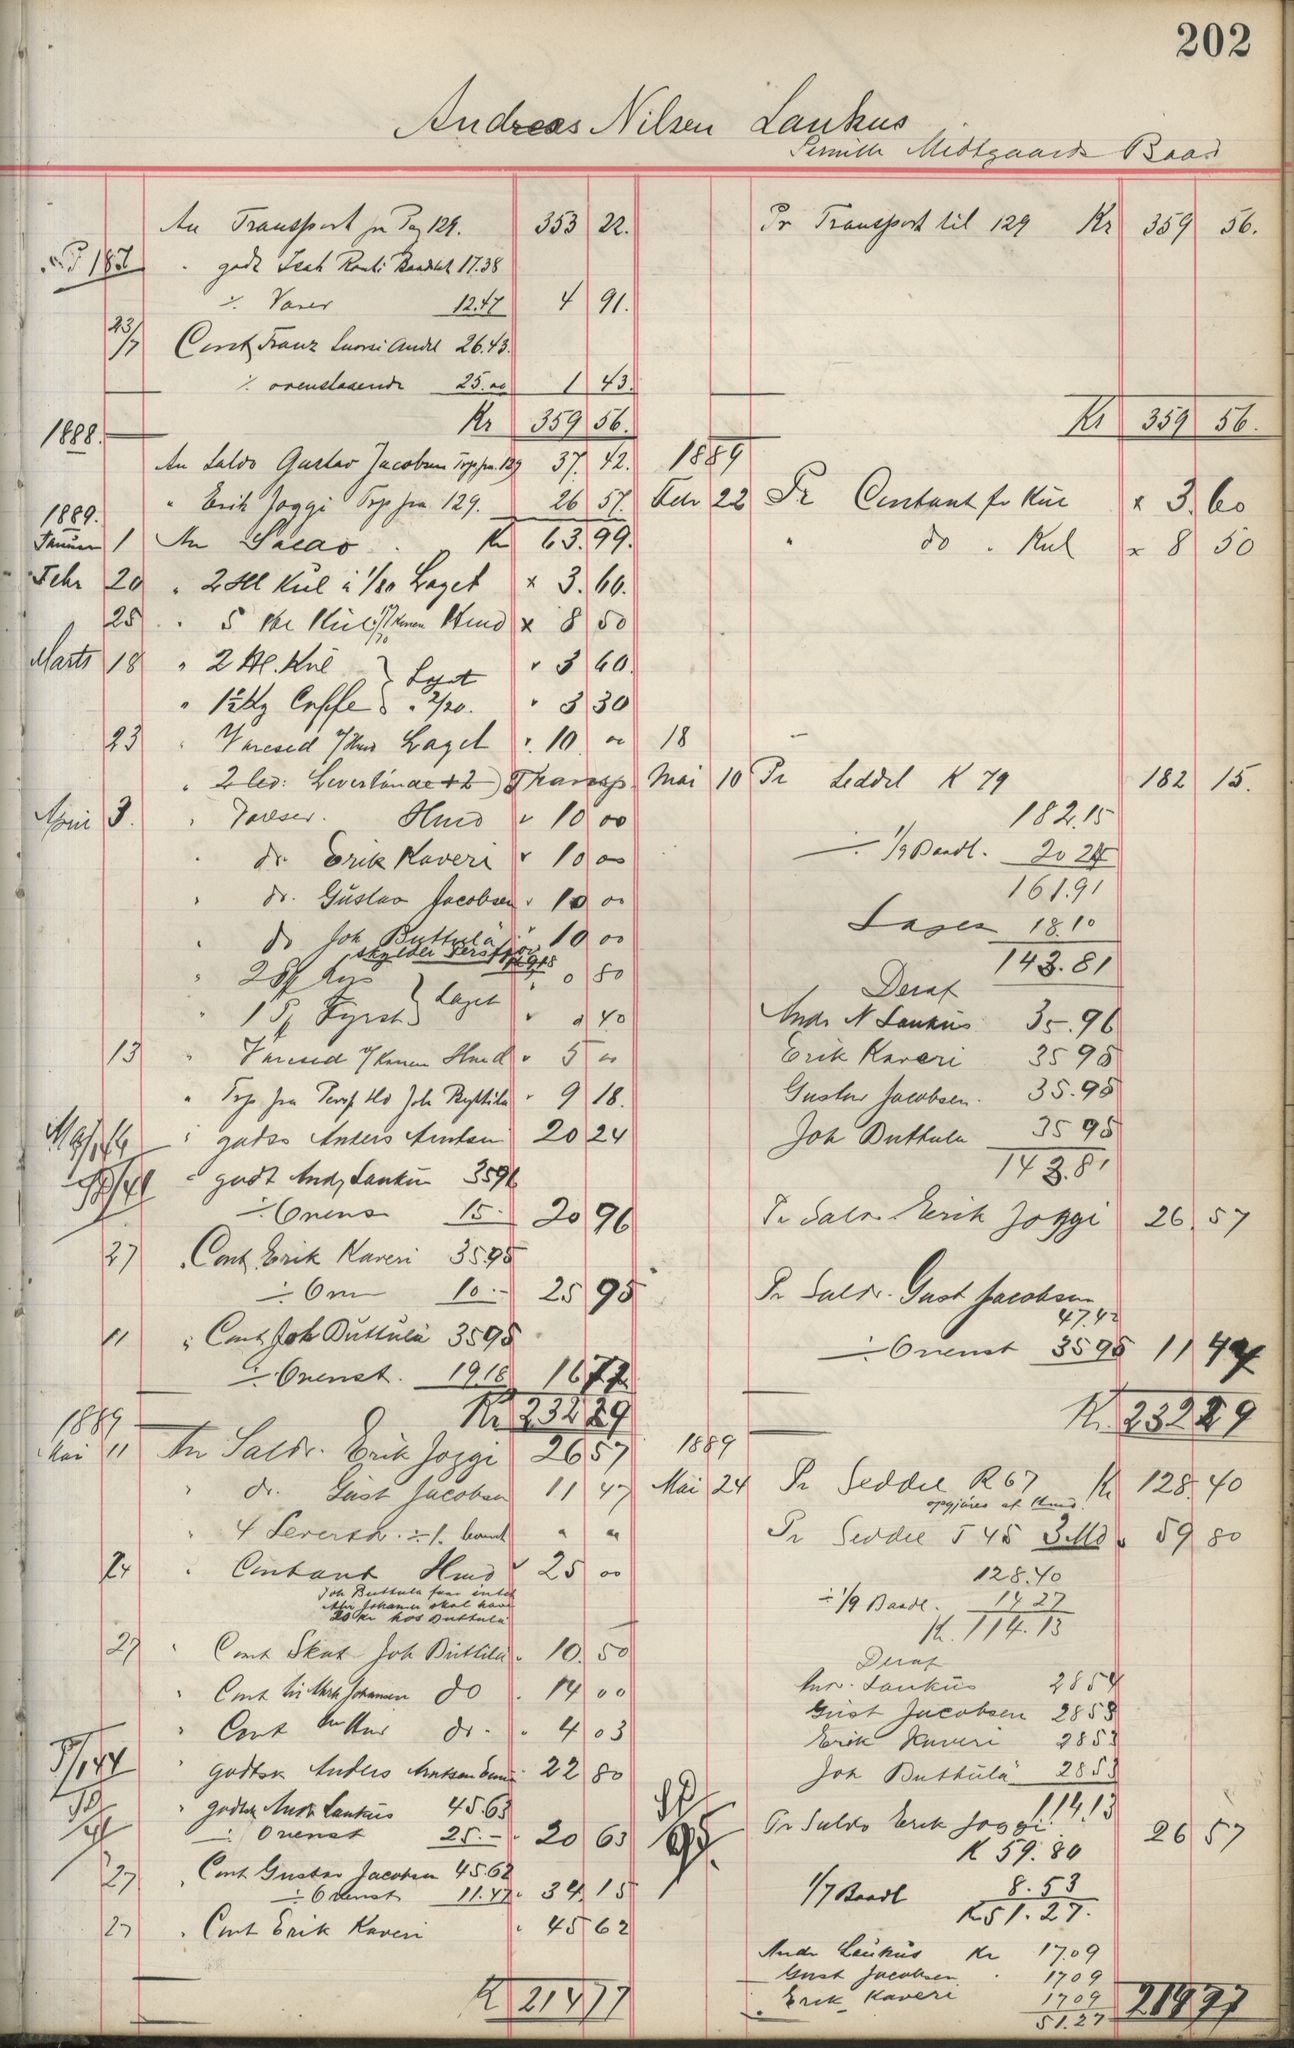 202
Andreas Nilsen Laukus
Pernille Midtgaards Baad
An Transport fra Pag 129. 353 22.
P 187 " godt Isak Rauti Baadlot 17.38
÷ Varer 12.47 4 91.
23/7 Cont Franz Andel 26.43.
÷ ovenstaaende 25.00 1 43.
Kr 359 56.
1888.
An Saldo Gustav Jacobsen Trp fra 129 37. 42.
" Erik Joggi Trp fra 129. 26 57.
1889.
Januar 1 An Saldo Kr 63.99.
Febr 20 " 2 Hl Kul à 1/80 Laget x 3.60.
25 " 5 Hl Kul Hmd x 8 50
Marts 18 " 2 Hl. Kul } Laget " 3 60.
" 1½ Kg Caffe " 2/20. " 3 30
23 " Varesed Laget " 10 00
" 2 led: Leverstunde + 2) Transp.
April 3. " Varesed. Hmd " 10 00
" do. Erik Kaveri " 10 00
" do. Gustav Jacobsen " 10 00
" do Joh Buttula " 10 00
" 2 Lys } Laget " 0 80
" 1 Fyrst " 0 40
13 " Varesed Hmd " 5 00
" Trp fra Joh Buttula " 9 18.
" godts Anders Arntsen 20 24
" godt Andr Laukus 3596
÷ Ovens 15.- 20 96
27 " Cont Erik Kaveri 3595
÷ Oven 10.- 25 95
11 " Cont Joh Buttula 3595
÷ Ovenst. 19.18 16 77
Kr 232 29
1889
Mai 11 An Saldo. Erik Joggi 26 57
" do. Gust Jacobsen 11 47
" 4 Leversth. " "
24 " Contant Hmd " 25 00
Joh Buttula faar intet
Johansen skal have
20 kr hos Buttula
27 " Cont Skat Joh Buttula " 10.50
" Cont Johansen do " 14 00
" Cont do. " 4 03
P/144 " godtsk Anders Arntsen 22 80
" godtsk Andr Laukus 45.63
÷ Ovenst 25.- " 20 63
27 " Cont Gustav Jacobsen 45.62
÷ Ovenst 11.47 " 34.15
27 " Cont Erik Kaveri " 45 62
K 214 77
Pr Transport til 129 Kr 359 56.
Kr 359 56.
1889
Febr 22 Pr Contant fr Kul x 3.60
" do " Kul x 8 50
18
Mai 10 Pr Seddel K 79 182 15.
182.15
÷ 1/9 Baadl. 20 24
161.91
Lages 18.10
143.81
Deraf
Andr N Laukus 35.96
Erik Kaveri 35 95
Gustav Jacobsen. 35.95
Joh Buttula 35 95
143.81
Pr Saldo Erik Joggi 26.57
Pr Saldo. Gust Jacobsen
47.42
÷ Ovenst 35 95 11 47
Kr. 232 29
1889
Mai 24 Pr Seddel R 67 Kr 128.40
opgjøres af Hmd.
Pr Seddel T 45 3 Md " 59 80
128.40
÷ 1/9 Baadl. 14 27
Kr. 114.13
Deraf
Andr. Laukus 28 54
Gust Jacobsen 28 53
Erik Kaveri 28 53
Joh Buttula 28 53
114.13
Pr Saldo Erik Joggi 26 57
K 59.80
1/7 Baadl 8.53
K 51.27.
Andr Laukus Kr 17.09
Gust Jacobsen " 17 09
" Erik Kaveri 17 09
51.27
214 77